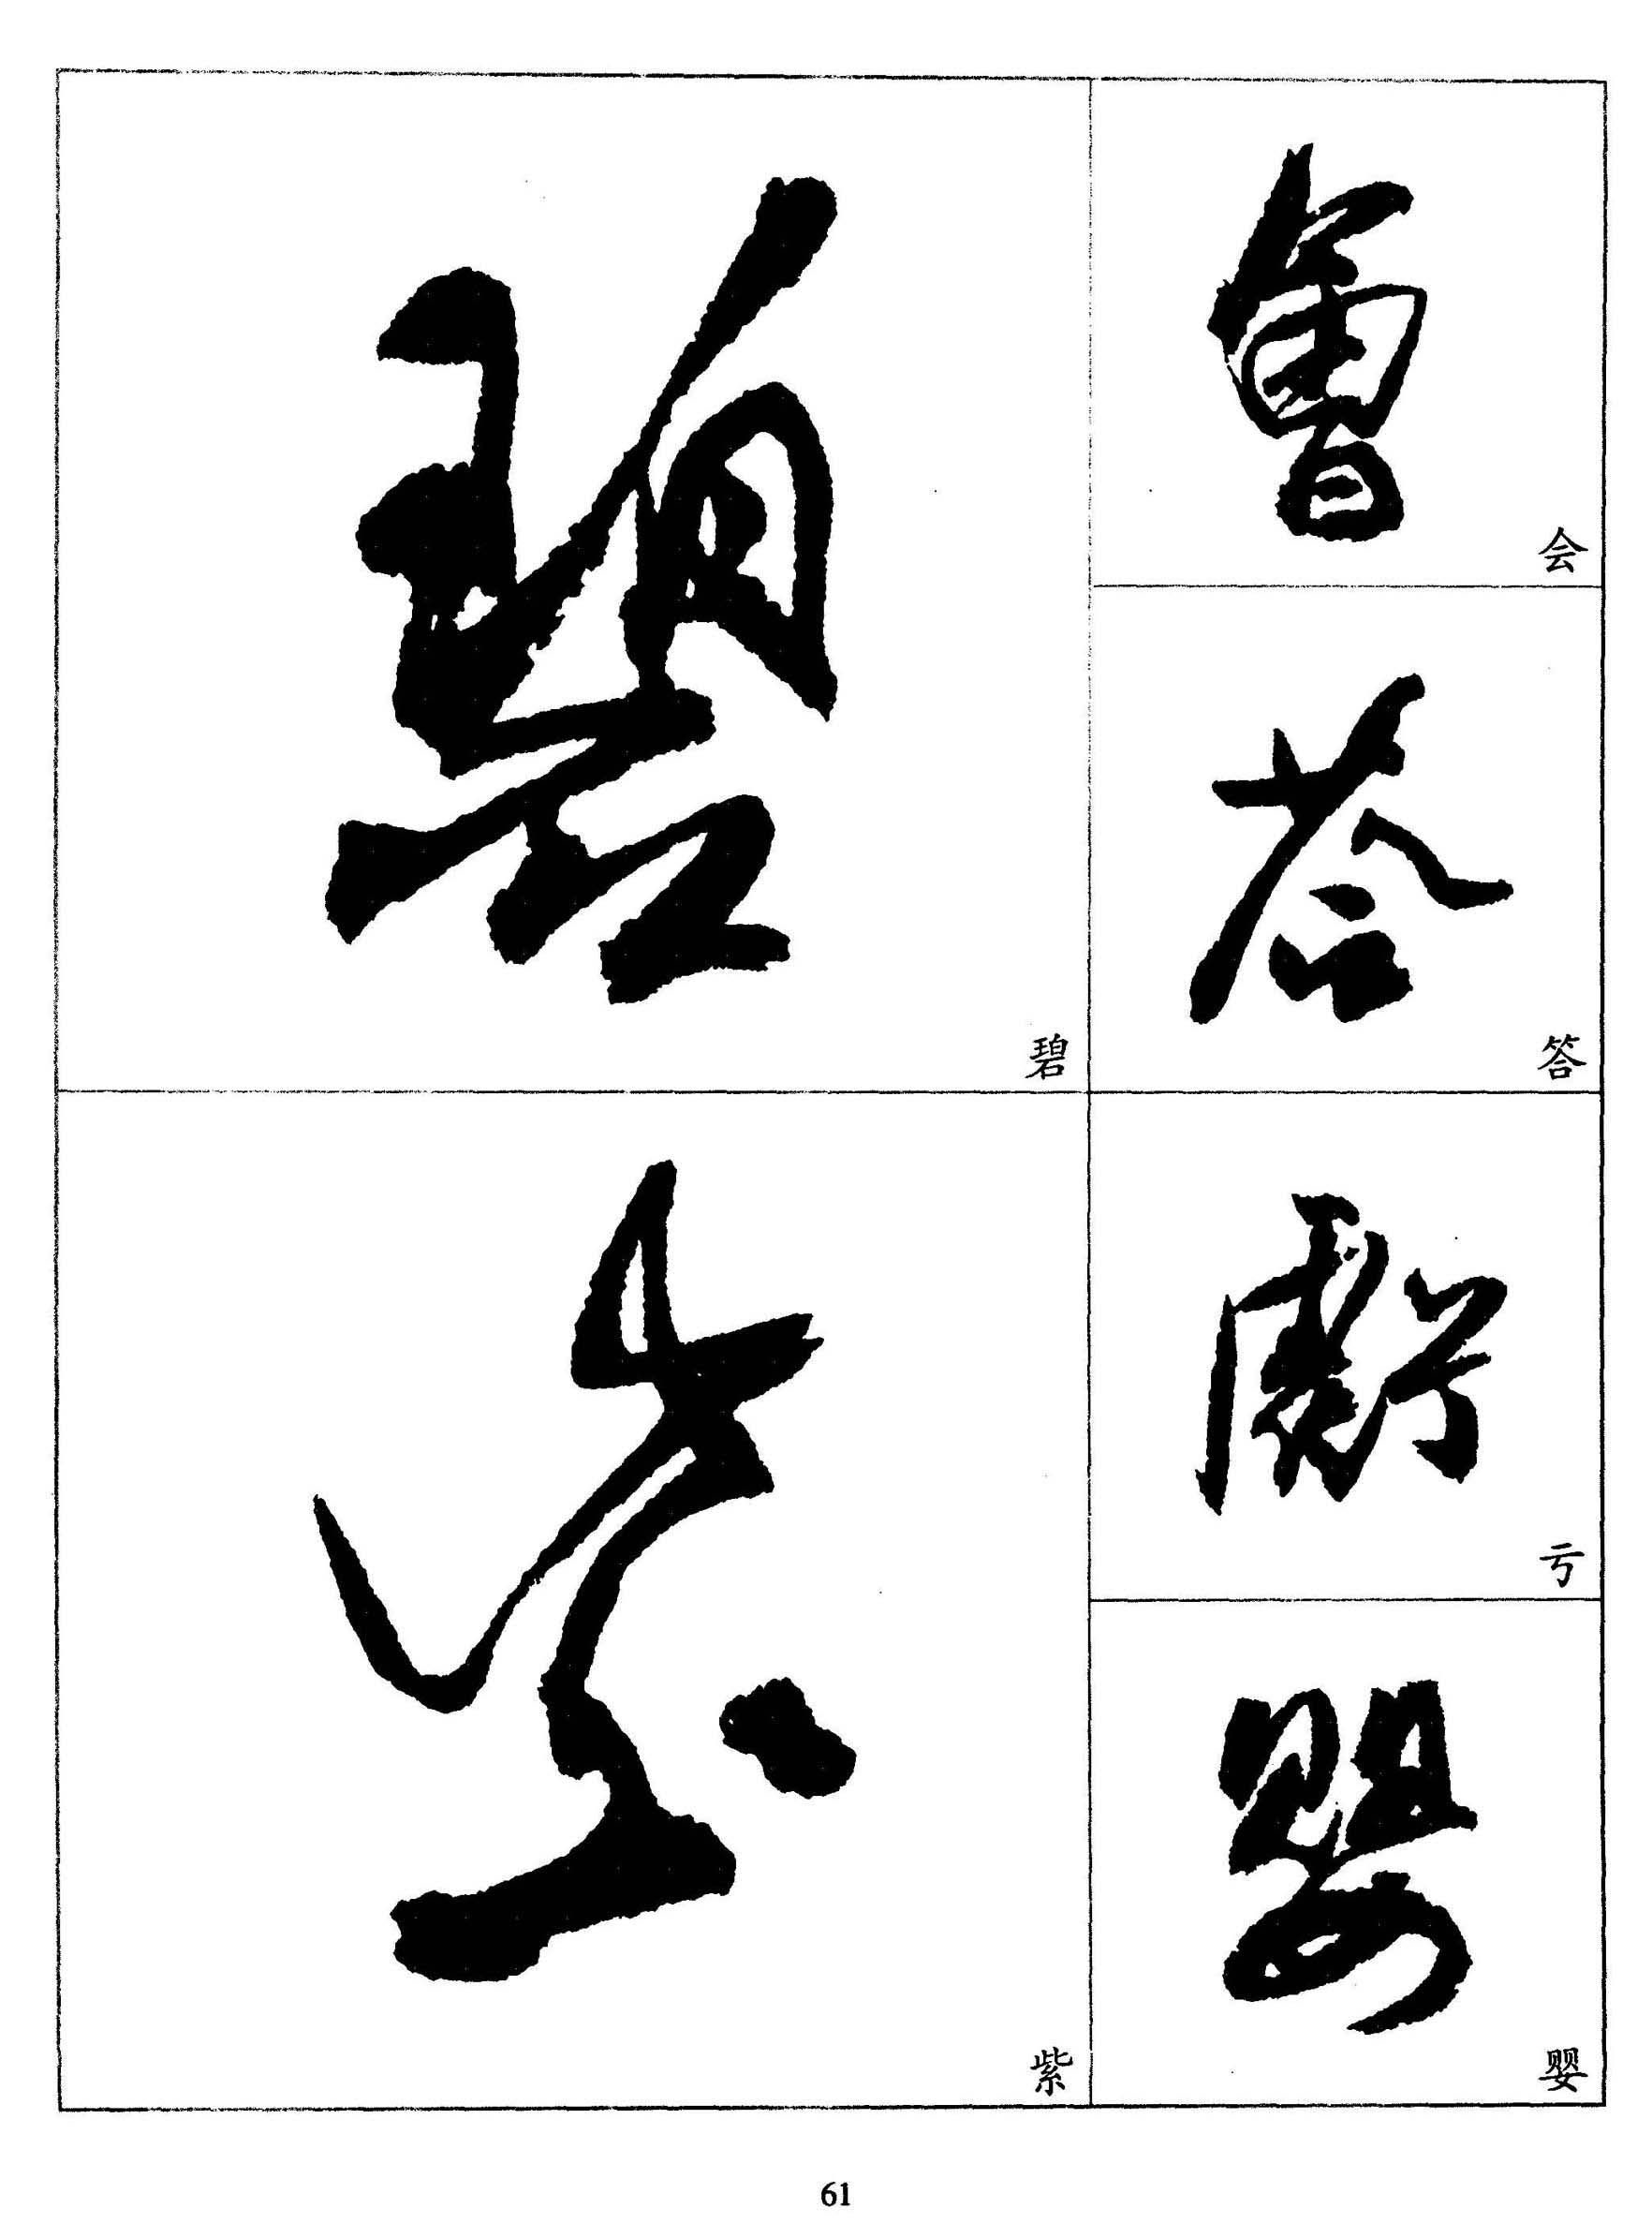 會
会
荅
答
虧
亏
嬰
婴
碧
碧
紫
紫
61